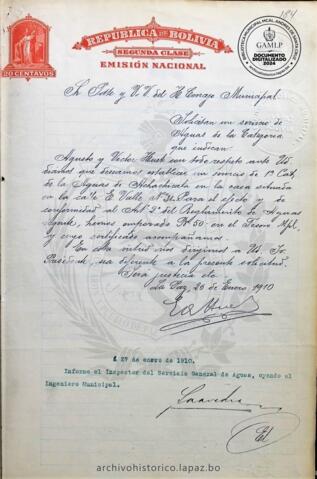 184
REPUBLICA DE BOLIVIA
SEGUNDA CLASE
EMISIÓN NACIONAL
20 CENTAVOS
GAMLP
DOCUMENTO
DIGITALIZADO
2024
Sr. Pdte y V.V. del H. Concejo Municipal.
Solicitan un servicio de
Aguas de la Categoria
que indican.
Agusto y Victor con todo respeto ante Ud
decimos que deseamos establecer un servicio de 1ª Cat.
de la Aguas de Achachicala en la casa situada
en la calle E. Valle Nº Para el efecto y de
conformidad al Art 2º del Reglamento de Aguas
hemos emporado 50 - en el Tesoro Mpl.
y cuyo certificado acompañamos.
En esta virtud nos dirigimos a Ud. Sr.
Presidente, sea deferente a la presente solicitud.
Será justicia etc.
La Paz, 26 de Enero, 1910
á 27 de enero de 1910.
Informe el Inspector del Servicio General de Aguas, oyendo el
Ingeniero Municipal.
Saavedra
archivohistorico.lapaz.bo